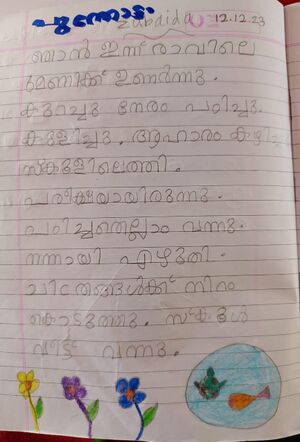 പൂന്തോട്ടം
Zubaida 12.12.23
ഞാൻ ഇന്ന് രാവിലെ
മണിക്ക് ഉണർന്നു.
കുറച്ചു നേരം പഠിച്ചു.
കുളിച്ചു. ആഹാരം കഴിച്ചു
സ്കൂളിലെത്തി.
പരീക്ഷയായിരുന്നു.
പഠിച്ചതെല്ലാം വന്നു.
നന്നായി എഴുതി.
ചിത്രങ്ങൾക്ക് നിറം
കൊടുത്തു. സ്കൂൾ
വിട്ട് വന്നു.